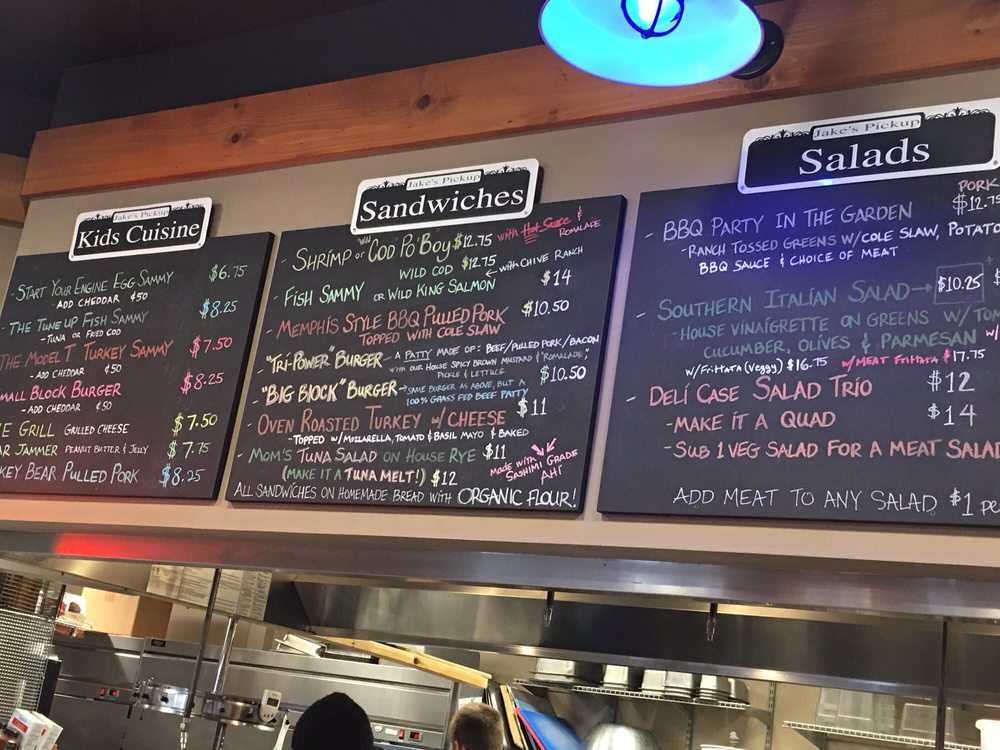 Jake's Pickup
Kids Cuisine
- START YOUR ENGINE EGG SAMMY $6.75
- ADD CHEDDAR $.50
- THE TUNE UP FISH SAMMY $8.25
- TUNA OR FRIED COD
THE MODEL T TURKEY SAMMY $7.50
- ADD CHEDDAR $.50
MALL BLOCK BURGER $8.25
- ADD CHEDDAR $.50
E GRILL GRILLED CHEESE $7.50
AR JAMMER PEANUT BUTTER & JELLY $7.75
KEY BEAR PULLED PORK $8.25
Jake's Pickup
Sandwiches
- SHRIMP OR WILD COD PO'BOY $12.75 with Hot Sauce & ROMALADE
WILD COD $12.75
- FISH SAMMY OR WILD KING SALMON ← WITH CHIVE RANCH $14
- MEMPHIS STYLE BBQ PULLED PORK $10.50
TOPPED WITH COLE SLAW
- "TRI-POWER" BURGER - A PATTY MADE OF: BEEF/PULLED PORK/BACON
WITH OUR HOUSE SPICY BROWN MUSTARD & "ROMALADE"
PICKLE & LETTUCE $10.50
- "BIG BLOCK" BURGER → SAME BURGER AS ABOVE, BUT A
100% GRASS FED BEEF PATTY
- OVEN ROASTED TURKEY w/ CHEESE $11
- TOPPED W/MOZZARELLA, TOMATO & BASIL MAYO & BAKED
- MOM'S TUNA SALAD ON HOUSE RYE $11
(MAKE IT A TUNA MELT!) $12
made with SASHIMI GRADE AHI
ALL SANDWICHES ON HOMEMADE BREAD WITH ORGANIC FLOUR!
Jake's Pickup
Salads
PORK
- BBQ PARTY IN THE GARDEN $12.75
- RANCH TOSSED GREENS W/COLE SLAW, POTATO
BBQ SAUCE & CHOICE OF MEAT
- SOUTHERN ITALIAN SALAD → $10.25 $
- HOUSE VINAIGRETTE ON GREENS W/ TOM
CUCUMBER, OLIVES & PARMESAN
W/FRITTATA (VEGGY) $16.75 W/MEAT FRITTATA $17.75
- DELI CASE SALAD TRIO $12
- MAKE IT A QUAD $14
- SUB 1 VEG SALAD FOR A MEAT SALAD
ADD MEAT TO ANY SALAD $1 pe